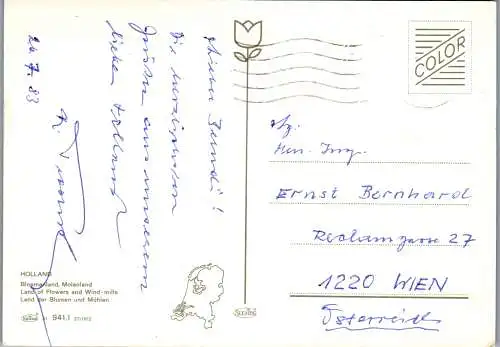 26.7.83
Lieber Freund!
Die herzlichsten
Grüße aus unserem
lieben Holland
HOLLAND
Bloemenland, Molenland
Land of Flowers and Wind-mills
Land der Blumen und Mühlen
941.1
COLOR
Hrn. Ing.
Ernst Bernhard
27
1220 WIEN
Österreich